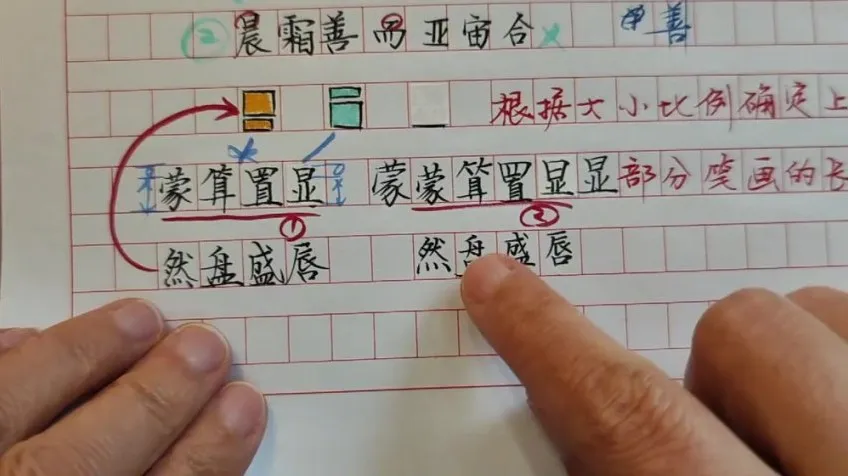 ② 晨霜善而亚宙合 善
根据大小比例确定上
蒙算置显 蒙蒙算置显显 部分笔画的长
① ②
然盘盛唇 然盘盛唇